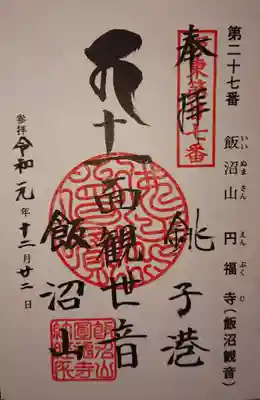 第二十七番　飯沼山　円福寺（飯沼観音）
いい ぬま さん　えん ぷく じ
奉拝
坂東第廿七番
銚子港
十一面観世音
飯沼山
参拝 令和元年十二月廿二日
飯沼山
圓福寺